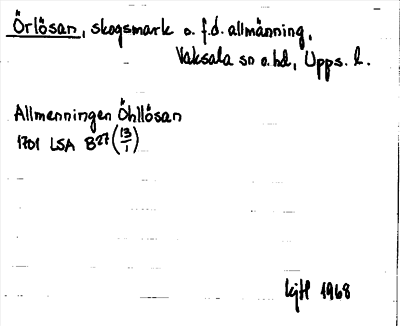 Örlösan, skogsmark o. f.d. allmänning,
Vaksala sn o. hd, Upps. l.
Allmenningen Öhllösan
1701 LSA B27 (13/1)
kjH 1968